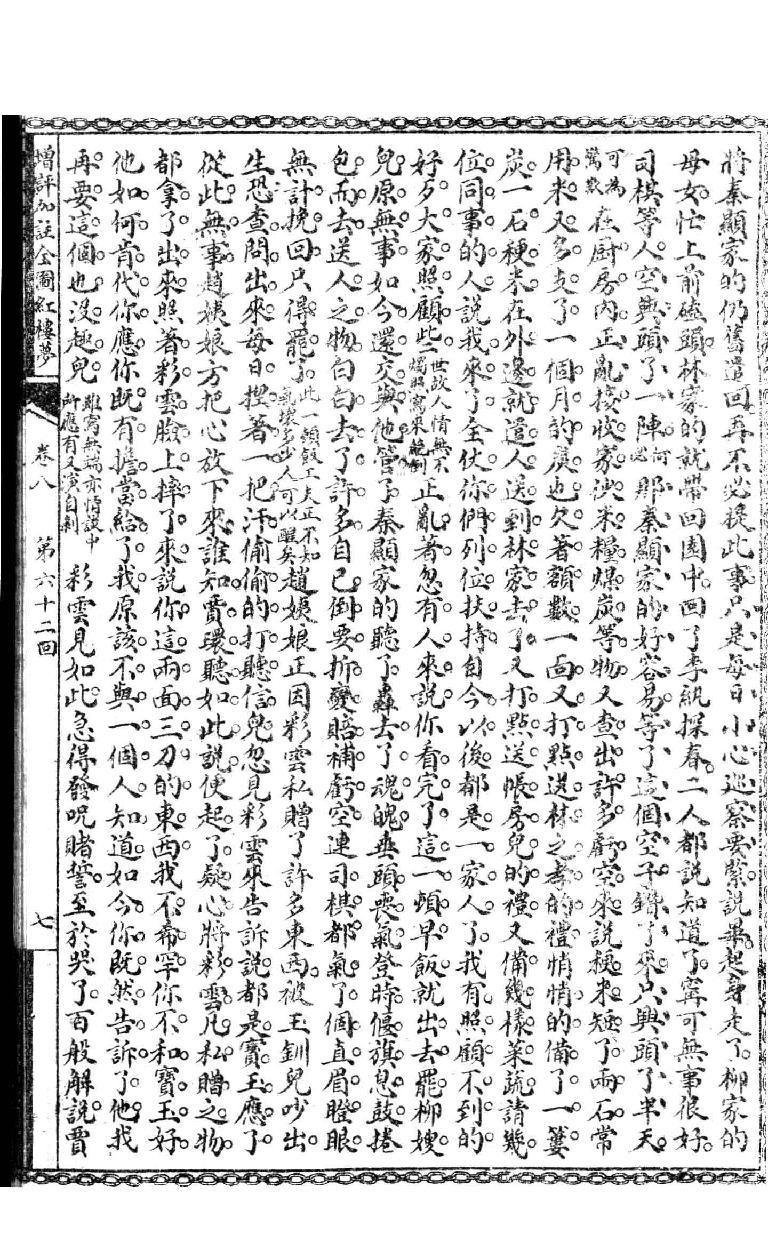 將秦顯家的仍舊遣回再不必提此事只是每日小心巡察要緊說畢起身走了柳家的
母女忙上前磕頭林家的就帶回園中回了李紈探春二人都說知道了寧可無事很好
司棋等人空興頭了一陣何必那秦顯家的好容易等了這個空子鑽了來只興頭了半天
可為驚歎在厨房內正亂接收家伙米糧煤炭等物又查出許多虧空來說粳米短了兩石常
用米又多支了一個月的炭也欠著額數一面又打點送林之孝的禮悄悄的備了一簍
炭一石粳米在外邊就遣人送到林家去了又打點送帳房兒的禮又備幾樣菜蔬請幾
位同事的人說我來了全仗你們列位扶持自今以後都是一家人了我有照顧不到的
好歹大家照顧些世故人情無不燭照寫來正亂著忽有人來說你看完了這一頓早飯就出去罷柳嫂
兒原無事如今還交與他管了秦顯家的聽了轟去了魂魄垂頭喪氣登時偃旗息鼓捲
包而去送人之物白白去了許多自己倒要折變賠補虧空連司棋都氣了個直眉瞪眼
無計挽回只得罷了此一頓飯工夫正不知多少人可以醒矣趙姨娘正因彩雲私贈了許多東西被玉釧兒吵出
生恐查問出來每日捏著一把汗偷偷的打聽信兒忽見彩雲來告訴說都是寶玉應了
從此無事趙姨娘方把心放下來誰知賈環聽如此說便起了疑心將彩雲凡私贈之物
都拿了出來照著彩雲臉上摔了來說你這兩面三刀的東西我不希罕你不和寶玉好
他如何肯代你應你既有擔當給了我原該不與一個人知道如今你既然告訴了他我
再要這個也沒趣兒雖寫無端亦情誼中所應有彩雲見如此急得發呪賭誓至於哭了百般解說賈
增評加註全圖紅樓夢
卷八
第六十二回
七